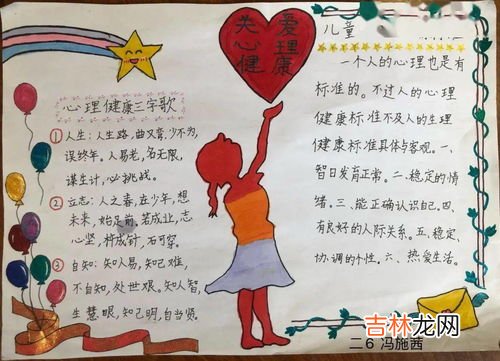 关爱
心理
健康
心理健康三字歌
①人生：人生路，曲又弯，少不为，
误终年。人易老，名无限，
谋生计，心挑战。
②立志：人之春，在少年，想
未来，始足前，若成让，志
心坚，杵成针，石可穿。
③自知：知人易，知己难，
不自知，处世艰，知人智，
生慧眼，知己明，自当贤。
儿童
一个人的心理也是有
标准的。不过人的心理
健康标准不及人的生理
健康标准具体与客观。一、
智日发育正常。二、稳定的情
绪。三、能正确认识自己。四、
有良好的人际关系。五、稳定、
协调的个性。六、热爱生活。
二6 冯施茜
吉林龙网